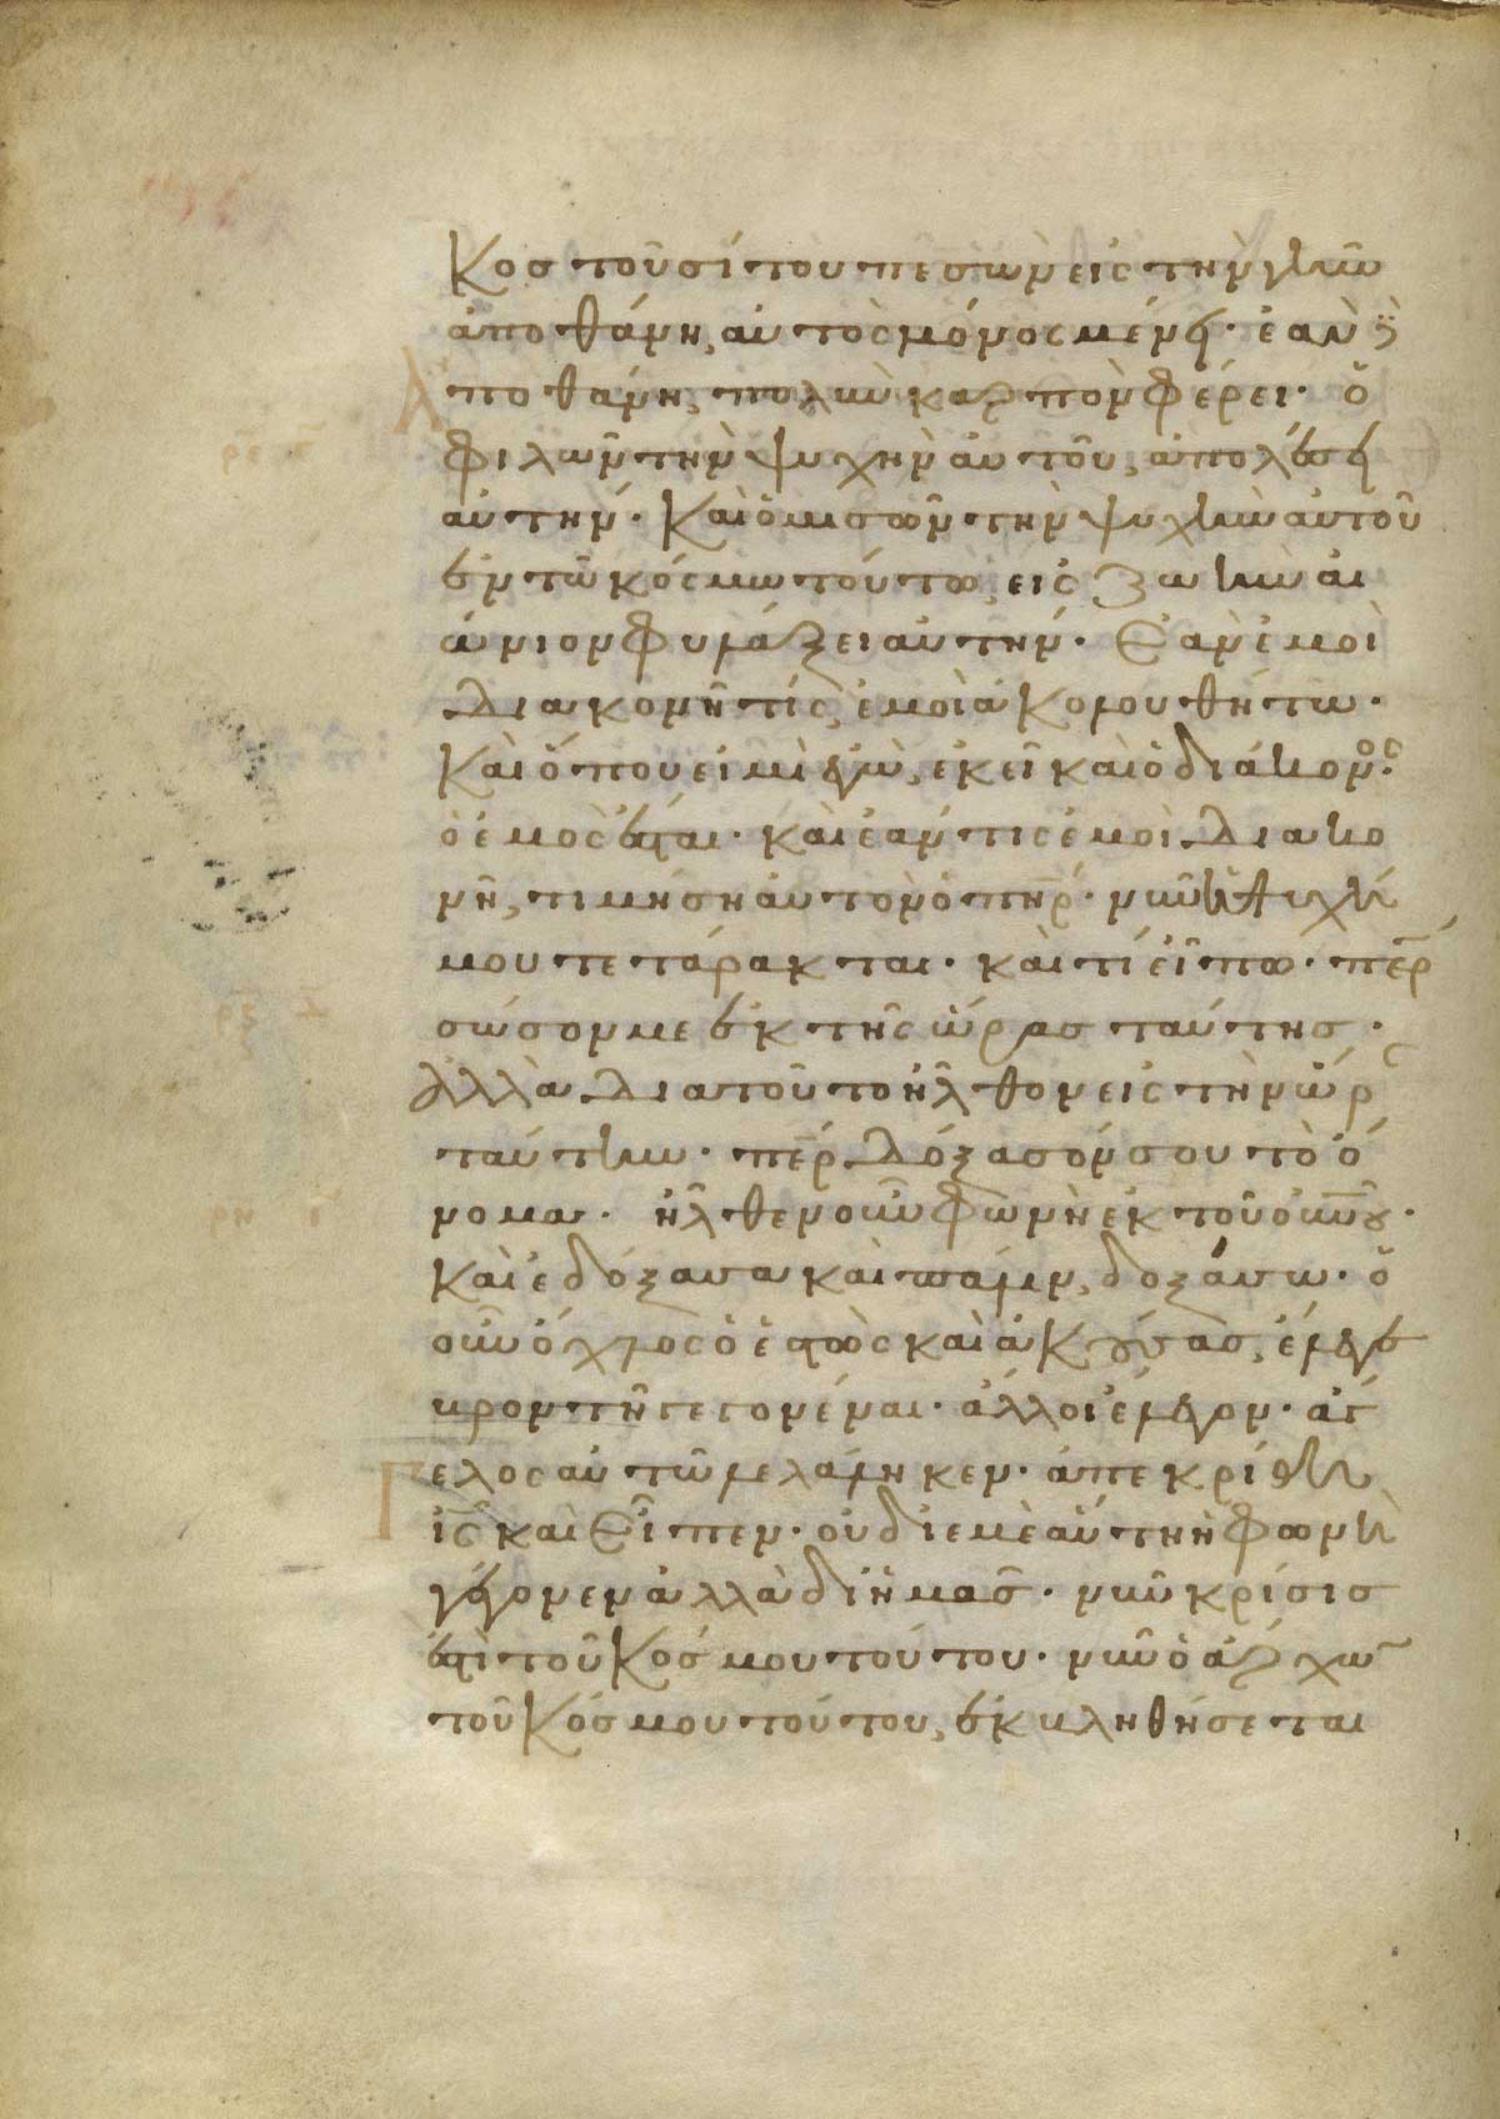 κοσ τοῦ σίτου πεσὼν εἰς τὴν γῆν
ἀποθάνη, αὐτὸς μόνος μένει· ἐὰν δὲ ἀ
ποθάνη, πολὺν καρπὸν φέρει· ὁ
φιλῶν τὴν ψυχὴν αὐτοῦ, ἀπολέσει
αὐτήν· καὶ ὁ μισῶν τὴν ψυχὴν αὐτοῦ
ἐν τῶ κόσμω τούτω, εἰς ζωὴν αἰ
ώνιον φυλάξει αὐτήν· Ἐὰν ἐμοὶ
διακονῆ τίς, ἐμοὶ ἀκολουθήτω·
Καὶ ὅπου εἰμὶ ἐγὼ, ἐκεῖ καὶ ὁ διάκονος
ὁ ἐμὸς ἔσται· καὶ ἐάν τις ἐμοὶ διακο
νῆ, τιμήση αὐτὸν ὁ πηρ· νῦν ἡ ψυχή
μου τετάρακται· καὶ τί εἴπω· περ
σώσον με ἐκ τῆς ὥρασ ταύτησ·
Ἀλλὰ διατοῦτο ἦλθον εἰς τὴν ὥρ
ταύτην· περ δόξασόν σου τὸ ὄ
νομα· ἦλθεν οὖν φωνὴ ἐκ τοῦ οὐνου·
Καὶ ἐδόξασα καὶ πάλιν, δοξάσω· ὁ
οὖν ὄχλος ὁ ἑστὼς καὶ ἀκούσασ, ἔλεγε
βροντὴν γεγονέναι· ἄλλοι ἔλεγον· ἄγ
γελος αὐτῶ λελάληκεν· ἀπεκρίθη
ις καὶ εἶπεν· οὐ δι ἐμὲ αὕτη ἡ φωνὴ
γέγονεν ἀλλὰ δι ἡμασ· νῦν κρίσισ
ἐστὶ τοῦ κόσμου τούτου· νῦν ὁ ἄρχω
τοῦ κόσμου τούτου, ἐκβληθήσεται